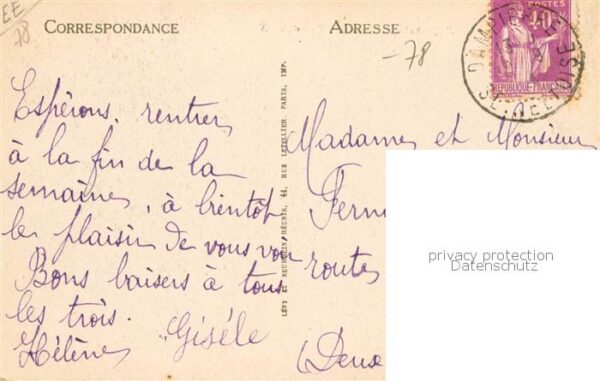 EE
78
CORRESPONDANCE
ADRESSE
-78
POSTES
40
REPUBLIQUE FRANÇAISE
DAMPIERRE
SNE ET OISE
Espérons rentrer
à la fin de la
semaine, à bientôt
le plaisir de vous voir
Bons baisers à tous
les trois.
Gisèle
Hélène
LÉVY ET NEURDEIN RÉUNIS, 44, RUE LETELLIER, PARIS, IMP.
Madame et Monsieur
Fern
routes
(Deux
privacy protection
Datenschutz